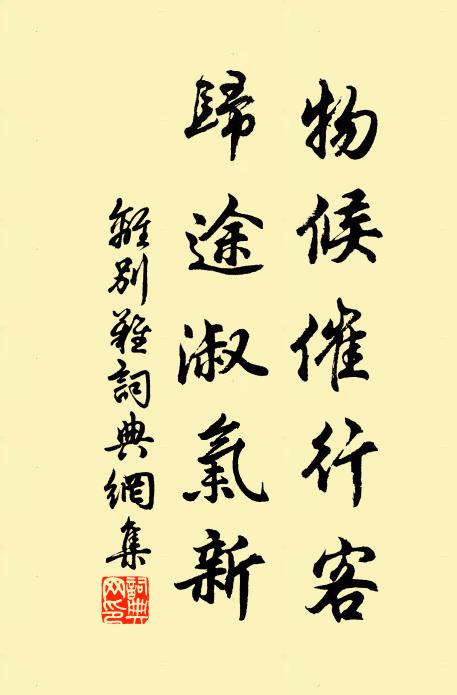 物候催行客
歸途淑氣新
離別難詞典網集
詞典网印